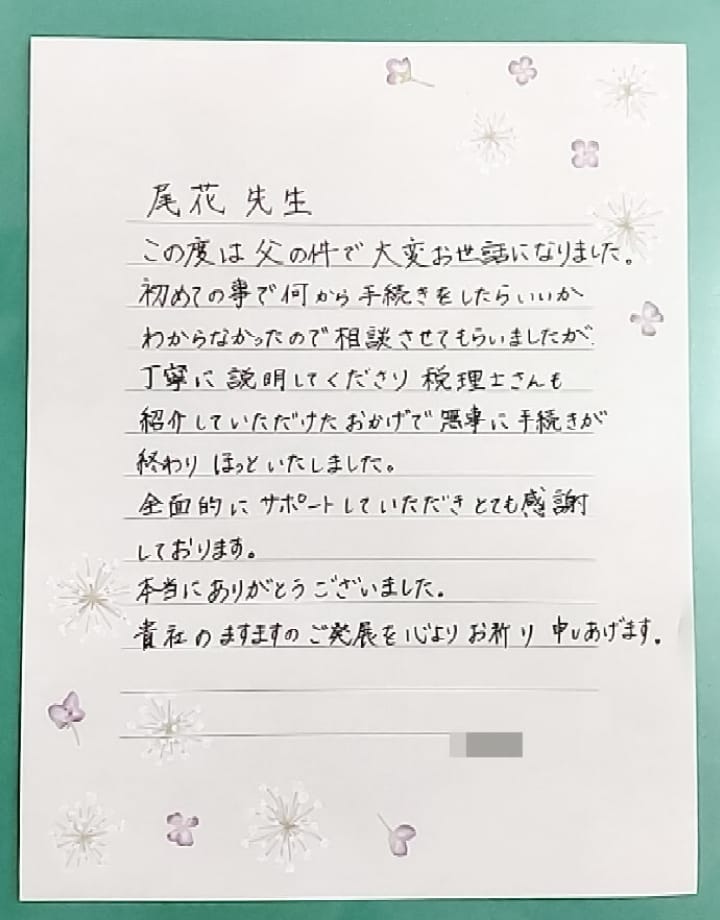 尾花 先生
この度は父の件で大変お世話になりました。
初めての事で何から手続きをしたらいいか
わからなかったので相談させてもらいましたが
丁寧に説明してくださり税理士さんも
紹介していただけたおかげで無事に手続きが
終わりほっといたしました。
全面的にサポートしていただきとても感謝
しております。
本当にありがとうございました。
貴社のますますのご発展を心よりお祈り申しあげます。